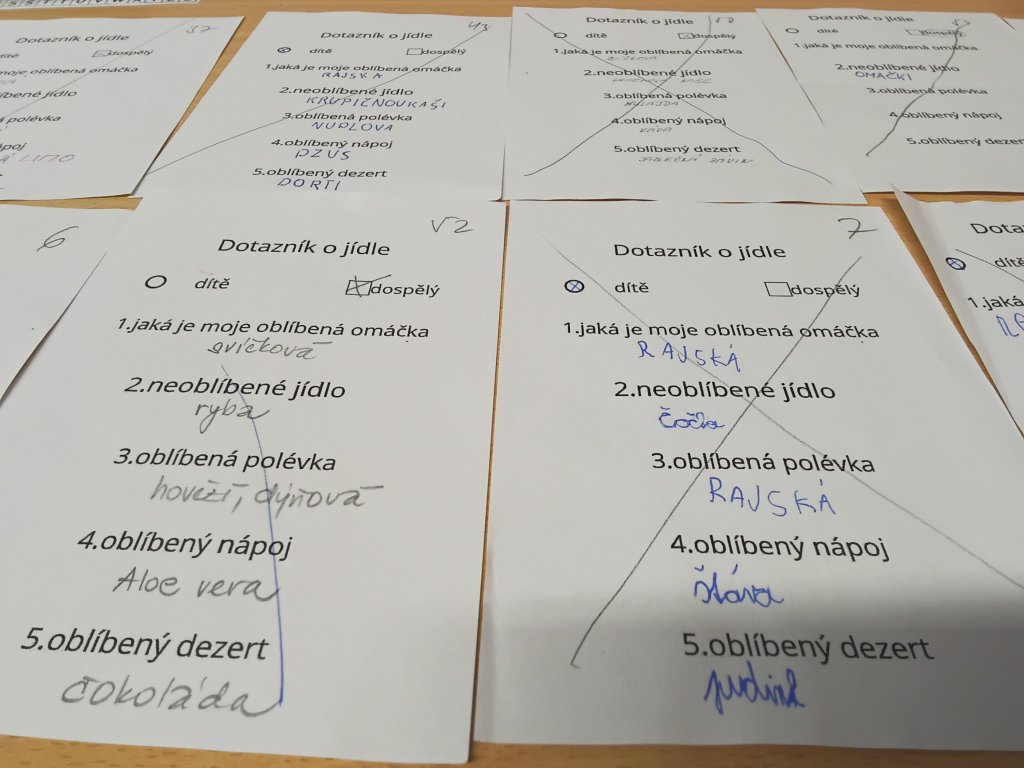 Dotazník o jídle
dospělý
moje oblíbená omáčka
oblíbené jídlo
polévka
nápoj
LIMO
43
Dotazník o jídle
dítě
dospělý
1.jaká je moje oblíbená omáčka
RAJSKA
2.neoblíbené jídlo
KRUPIČNOUKAŠI
3.oblíbená polévka
NUDLOVA
4.oblíbený nápoj
DZUS
5.oblíbený dezert
DORTI
Dotazník o jídle
dítě
dospělý
1.jaká je moje oblíbená omáčka
2.neoblíbené jídlo
3.oblíbená polévka
KULAJDA
4.oblíbený nápoj
KÁVA
5.oblíbený dezert
JABLEČNÝ ZÁVIN
Dotazník o jídle
dítě
dospělý
1.jaká je moje oblíbená omáčka
2.neoblíbené jídlo
OMAČKI
3.oblíbená polévka
4.oblíbený nápoj
5.oblíbený dezert
6
V2
Dotazník o jídle
dítě
dospělý
1.jaká je moje oblíbená omáčka
svíčková
2.neoblíbené jídlo
ryba
3.oblíbená polévka
hovězí, dýňová
4.oblíbený nápoj
Aloe vera
5.oblíbený dezert
čokoláda
7
Dotazník o jídle
dítě
dospělý
1.jaká je moje oblíbená omáčka
RAJSKÁ
2.neoblíbené jídlo
čočka
3.oblíbená polévka
RAJSKÁ
4.oblíbený nápoj
šťáva
5.oblíbený dezert
pudink
Dota
dítě
1.jaká